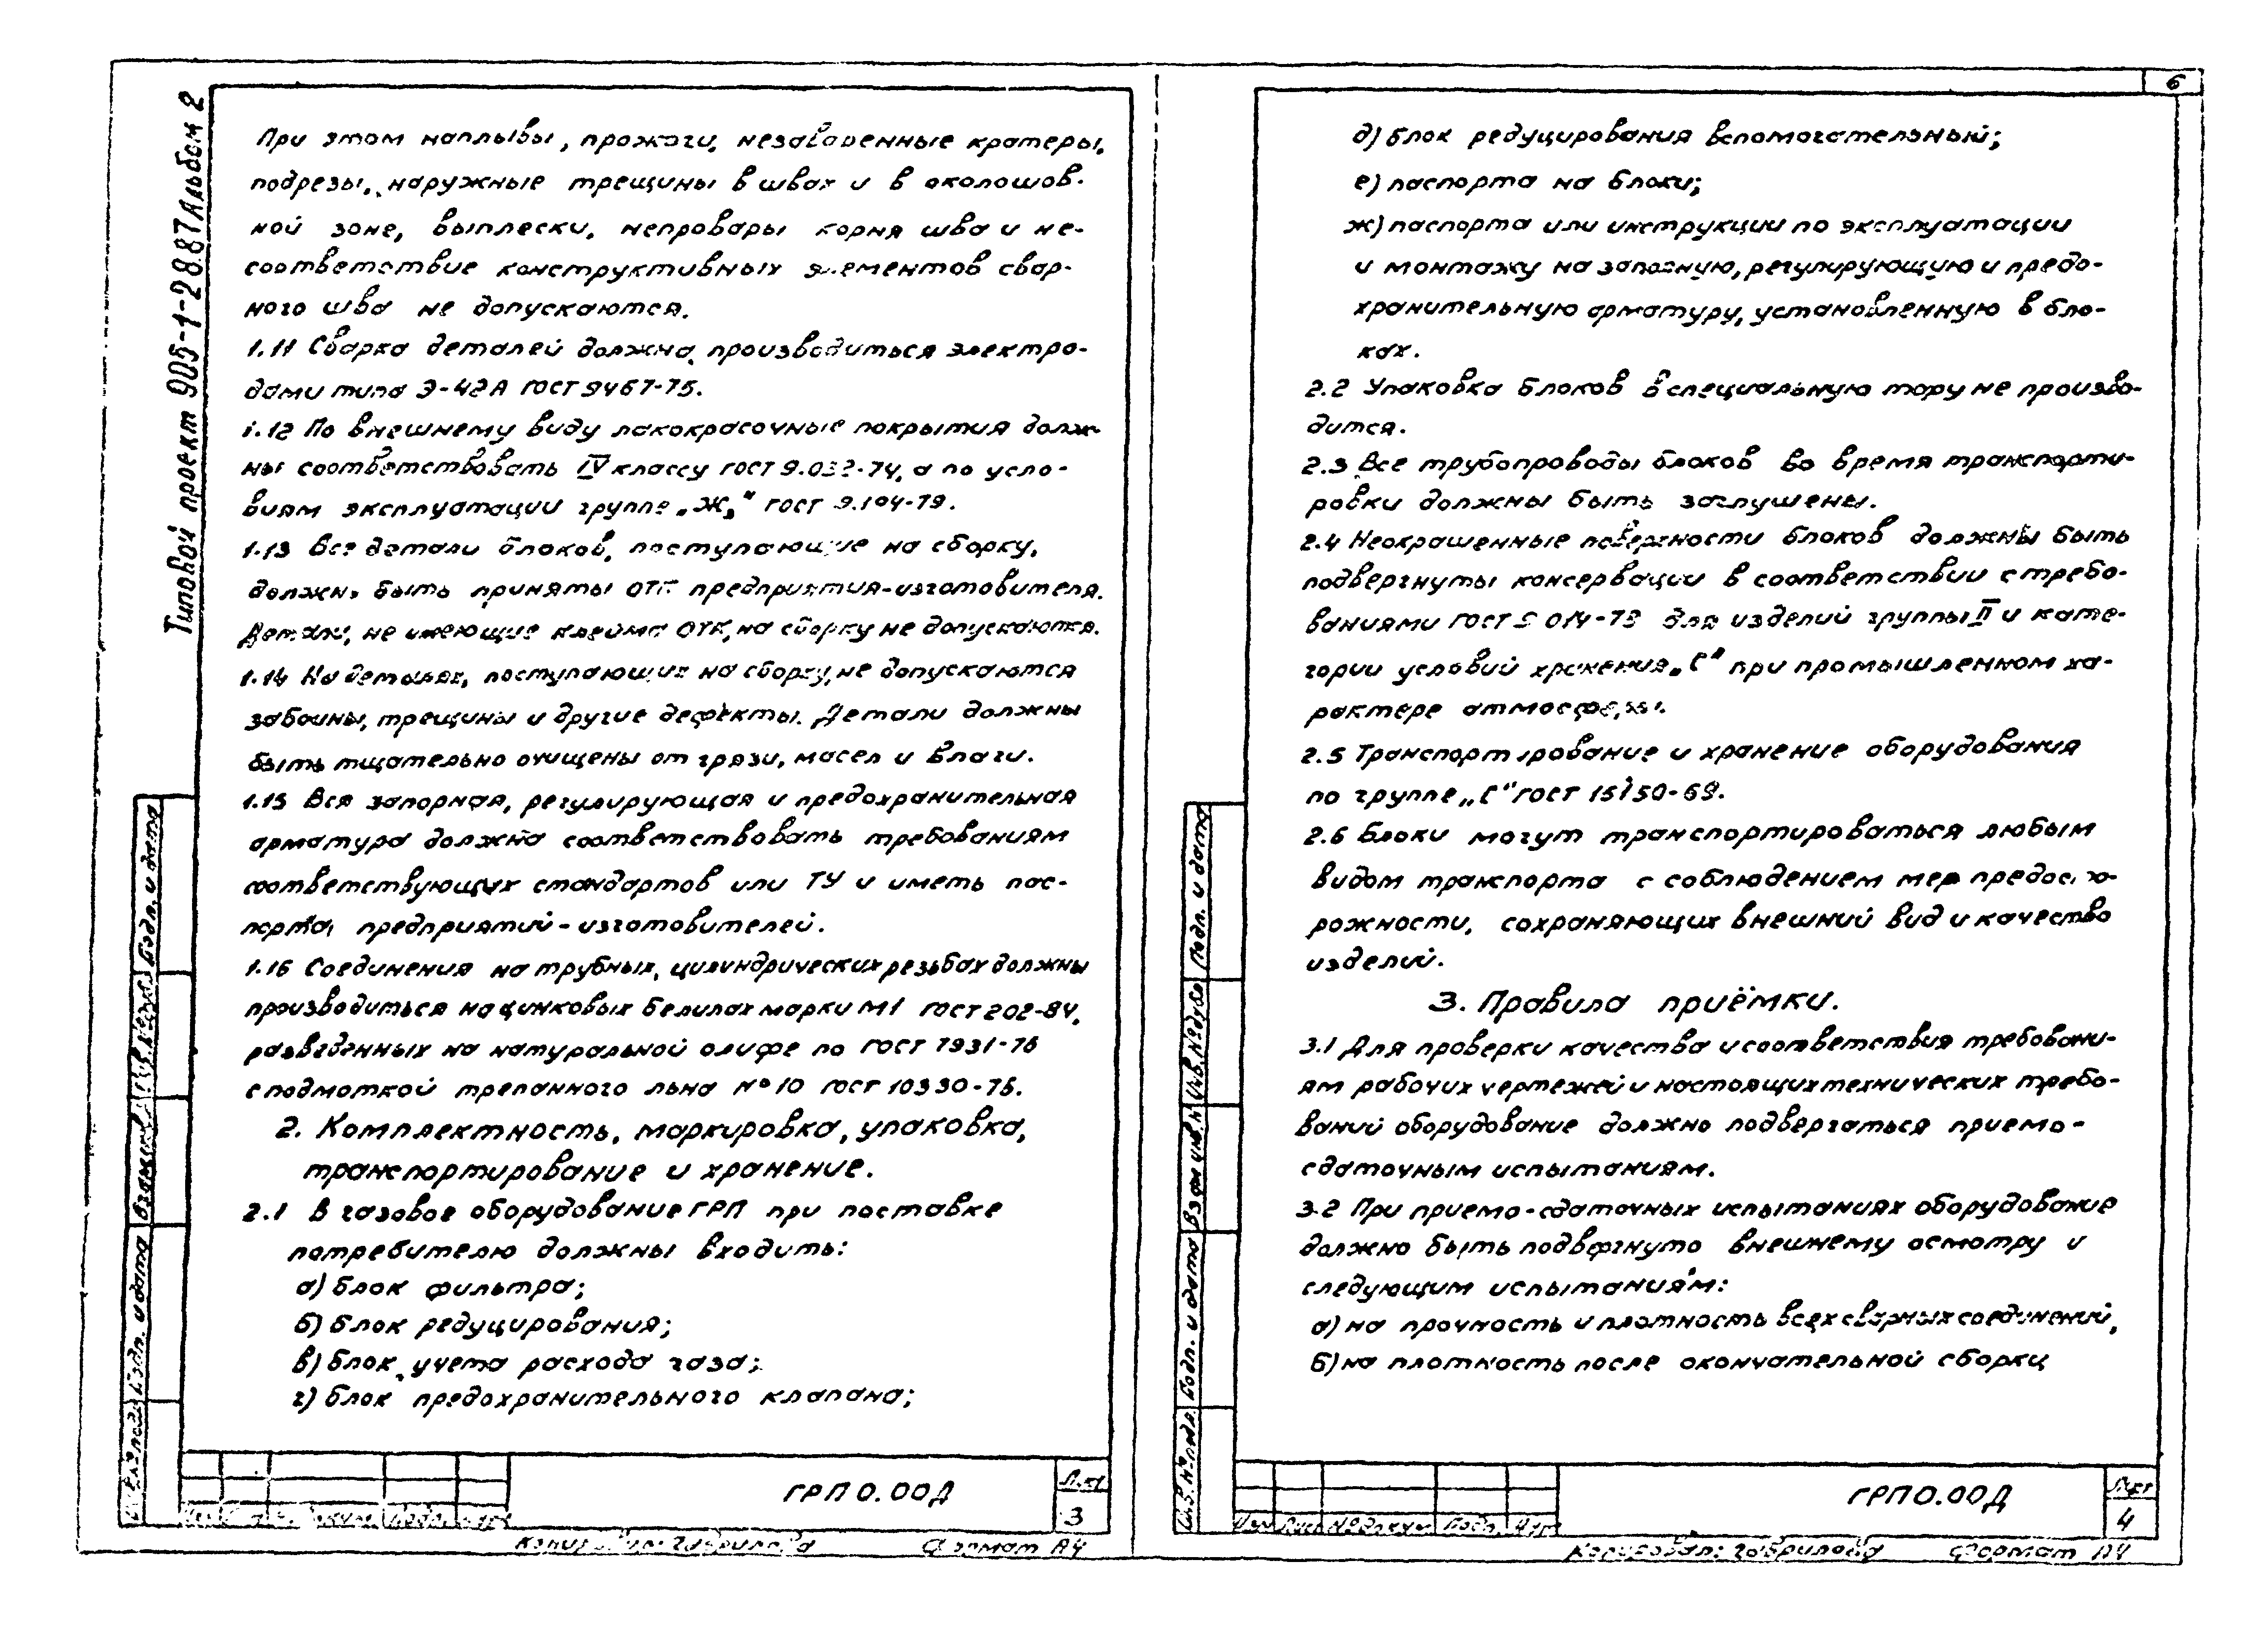 Типовой проект 905-1-28.87 Альбом 2
При этом наплывы, прожоги, незаваренные кратеры,
подрезы, наружные трещины в швах и в околошов-
ной зоне, выплески, непровары корня шва и не-
соответствие конструктивных элементов свар-
ного шва не допускаются.
1.11 Сварка деталей должна производиться электро-
дами типа Э-42А ГОСТ 9467-75.
1.12 По внешнему виду лакокрасочные покрытия долж-
ны соответствовать IV классу ГОСТ 9.032-74, а по усло-
виям эксплуатации группе „Ж2“ ГОСТ 9.104-79.
1.13 Все детали блоков, поступающие на сборку,
должны быть приняты ОТК предприятия-изготовителя.
Детали, не имеющие клейма ОТК, на сборку не допускаются.
1.14 На деталях, поступающих на сборку, не допускаются
забоины, трещины и другие дефекты. Детали должны
быть тщательно очищены от грязи, масел и влаги.
1.15 Вся запорная, регулирующая и предохранительная
арматура должна соответствовать требованиям
соответствующих стандартов или ТУ и иметь пас-
порта предприятий-изготовителей.
1.16 Соединения на трубных, цилиндрических резьбах должны
производиться на цинковых белилах марки М1 ГОСТ 202-84,
разведенных на натуральной олифе по ГОСТ 7931-76
с подмоткой трепанного льна №10 ГОСТ 10330-76.
2. Комплектность, маркировка, упаковка,
транспортирование и хранение.
2.1 В газовое оборудование ГРП при поставке
потребителю должны входить:
а) блок фильтра;
б) блок редуцирования;
в) блок учета расхода газа;
г) блок предохранительного клапана;
ГРП 0.00Д
Лист
3
Копировал: Гаврилова Формат А4
6
д) блок редуцирования вспомогательный;
е) паспорта на блоки;
ж) паспорта или инструкции по эксплуатации
и монтажу на запорную, регулирующую и предо-
хранительную арматуру, установленную в бло-
ках.
2.2 Упаковка блоков в специальную тару не произво-
дится.
2.3 Все трубопроводы блоков во время транспорти-
ровки должны быть заглушены.
2.4 Неокрашенные поверхности блоков должны быть
подвергнуты консервации в соответствии с требо-
ваниями ГОСТ 9 014-78 для изделий группы II и кате-
гории условий хранения „С“ при промышленном ха-
рактере атмосферы.
2.5 Транспортирование и хранение оборудования
по группе „С“ ГОСТ 15150-69.
2.6 Блоки могут транспортироваться любым
видом транспорта с соблюдением мер предосто-
рожности, сохраняющих внешний вид и качество
изделий.
3. Правила приёмки.
3.1 Для проверки качества и соответствия требовани-
ям рабочих чертежей и настоящих технических требо-
ваний оборудование должно подвергаться приемо-
сдаточным испытаниям.
3.2 При приемо-сдаточных испытаниях оборудование
должно быть подвергнуто внешнему осмотру и
следующим испытаниям:
а) на прочность и плотность всех сварных соединений,
б) на плотность после окончательной сборки
Инв. № подл. Подп. и дата Взам инв. № Инв. № дубл Подп. и дата
Изм Лист № докум Подп. Дата
ГРП 0.00Д
Лист
4
Копировал: Гаврилова Формат А4